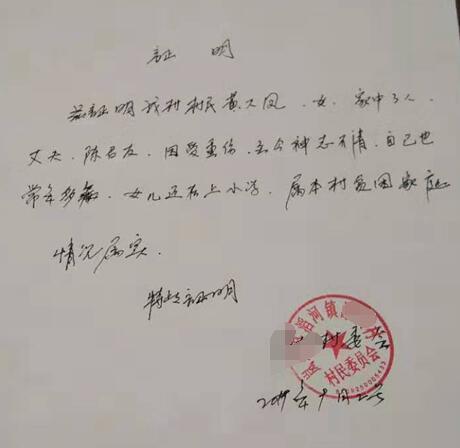 证 明
兹证明我村村民黄凤、女、家中3人、
丈夫、陈友、因受重伤、至今神志不清、自己也
常年多病、女儿还在上小学、属本村贫困家庭
情况属实.
特此证明
滔河镇
村委会
村民委员会
年9月